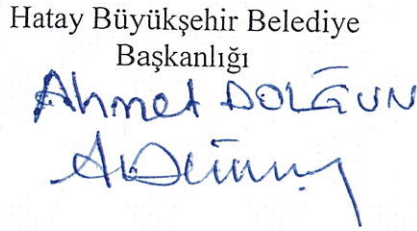 Hatay Büyükşehir Belediye
Başkanlığı
Ahmet DOLĞUN